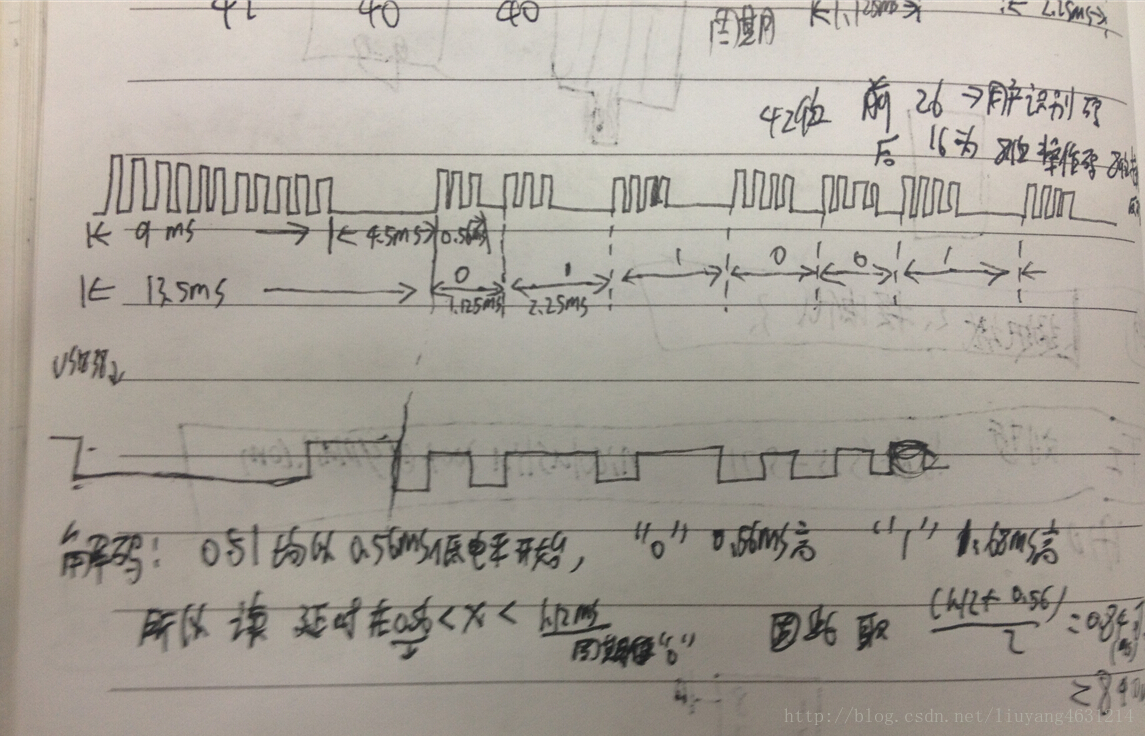 41 40 40 周期 1.125ms 2.25ms
42位 前 26 → 用户识别码
后 16为 8位 操作码
9 ms 4.5ms 0.56
0 1 1 0 0 1
13.5ms 1.125ms 2.25ms
VS838
解码： 0与1均以 0.56ms低电平开始, "0" 0.56ms高 "1" 1.68ms高
所以 读 延时在0.56 < X < 1.12ms 因此 取 (1.12+0.56)/2 = 0.84
周期 "0" (ms)
= 840
http://blog.csdn.net/liuyang4631214